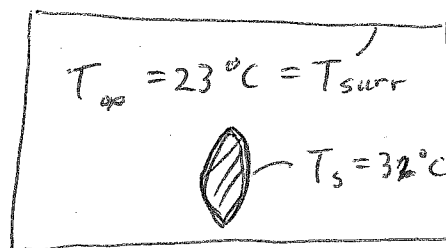 T∞ = 23°C = Tsurr
Ts = 32°C